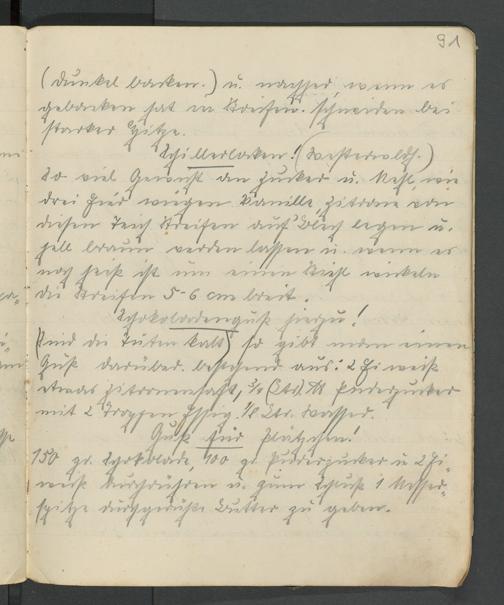 91
(Dunkel backen.) u. nachher wenn es
gebacken hat in Streifen schneiden bei
starker Hitze.
Schillerlocken! (Westerwoldh.)
So viel Gewicht an Zucker u. Mehl, wie
drei Eier wiegen Vanille, Zitrone von
diesem Teich Streifen auf Blech legen u.
hell braun werden lassen u. wenn es
noch heiß ist um einen Stiehl wickeln
die Streifen 5-6 cm breit.
Schokoladenguß hierzu!
(Sind die Tüten kalt) so gibt man einen
Guß darüber. bestehend aus: 2 Eiweiß
etwas Zitronensaft, Puderzucker
mit 2 Tropfen Essig. 1/8 Ltr. Wasser.
Guß für Plätzchen!
150 gr. Schokolade, 100 gr. Puderzucker u 2 Ei-
weiß durchrühren u. zum Schluß 1 Messer-
spitze durchgerührte Butter zu geben.